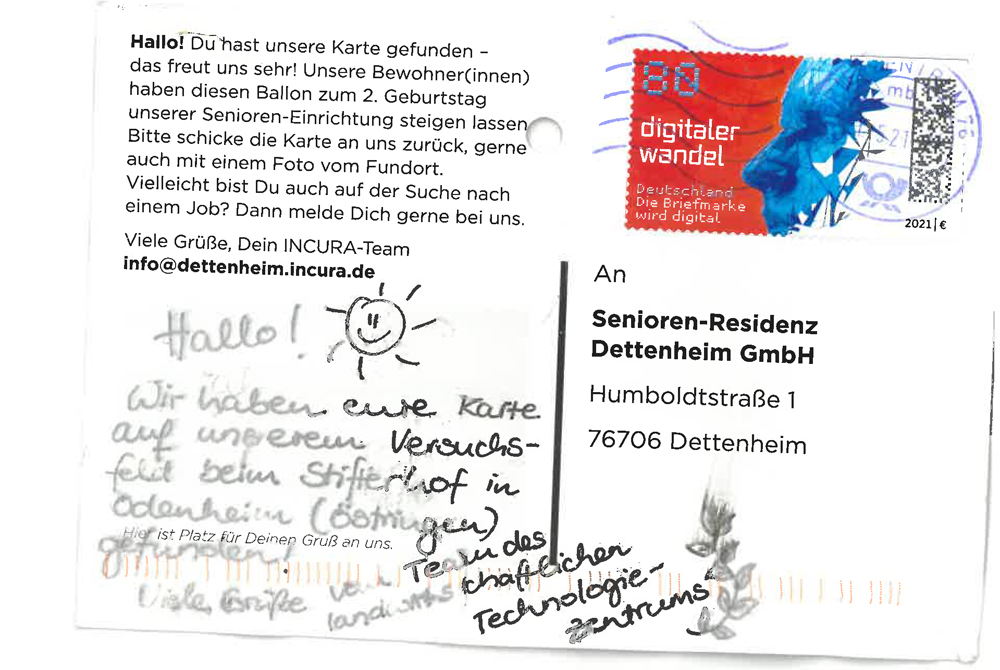 Hallo! Du hast unsere Karte gefunden –
das freut uns sehr! Unsere Bewohner(innen)
haben diesen Ballon zum 2. Geburtstag
unserer Senioren-Einrichtung steigen lassen.
Bitte schicke die Karte an uns zurück, gerne
auch mit einem Foto vom Fundort.
Vielleicht bist Du auch auf der Suche nach
einem Job? Dann melde Dich gerne bei uns.
Viele Grüße, Dein INCURA-Team
info@dettenheim.incura.de
Hallo!
Wir haben eure Karte
auf unserem Versuchs-
feld beim Stifterhof in
Odenheim (Östringen)
gefunden!
Hier ist Platz für Deinen Gruß an uns.
Viele Grüße vom Team des
landwirtschaftlichen
Technologie-
zentrums
80
digitaler
wandel
Deutschland
Die Briefmarke
wird digital
2021|€
An
Senioren-Residenz
Dettenheim GmbH
Humboldtstraße 1
76706 Dettenheim